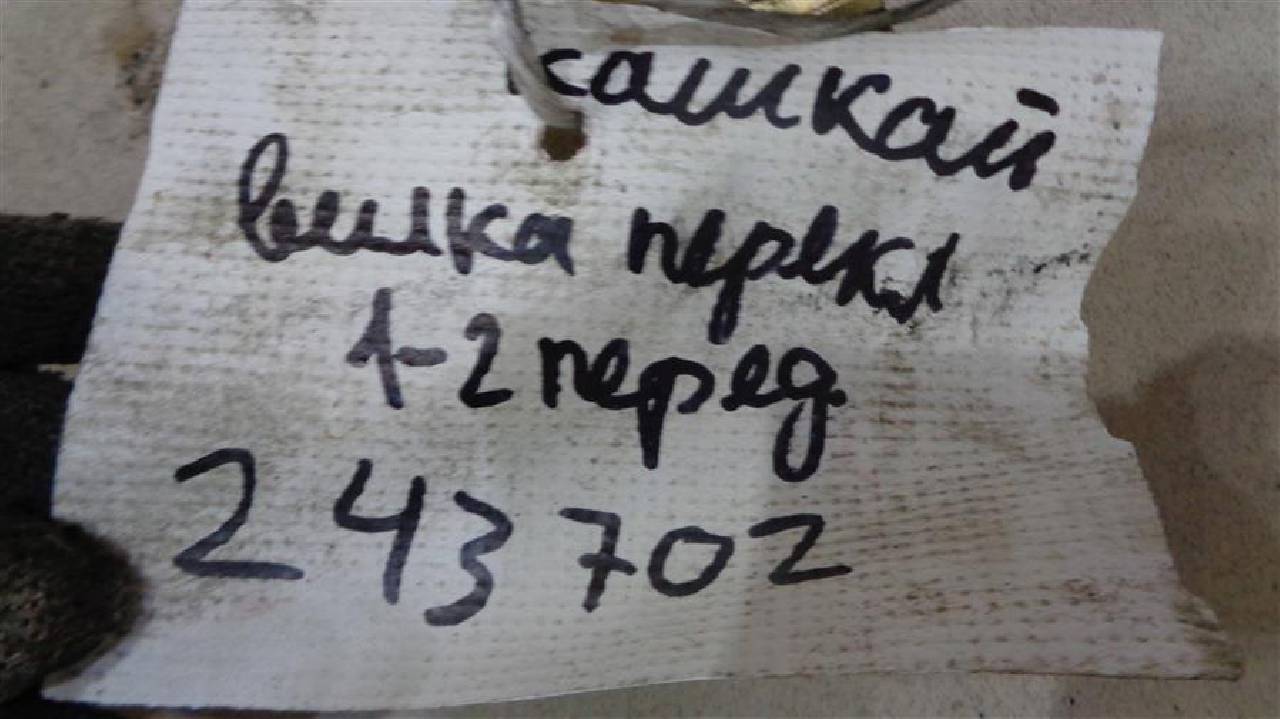 кашкай
вилка перекл
1-2 перед.
243702